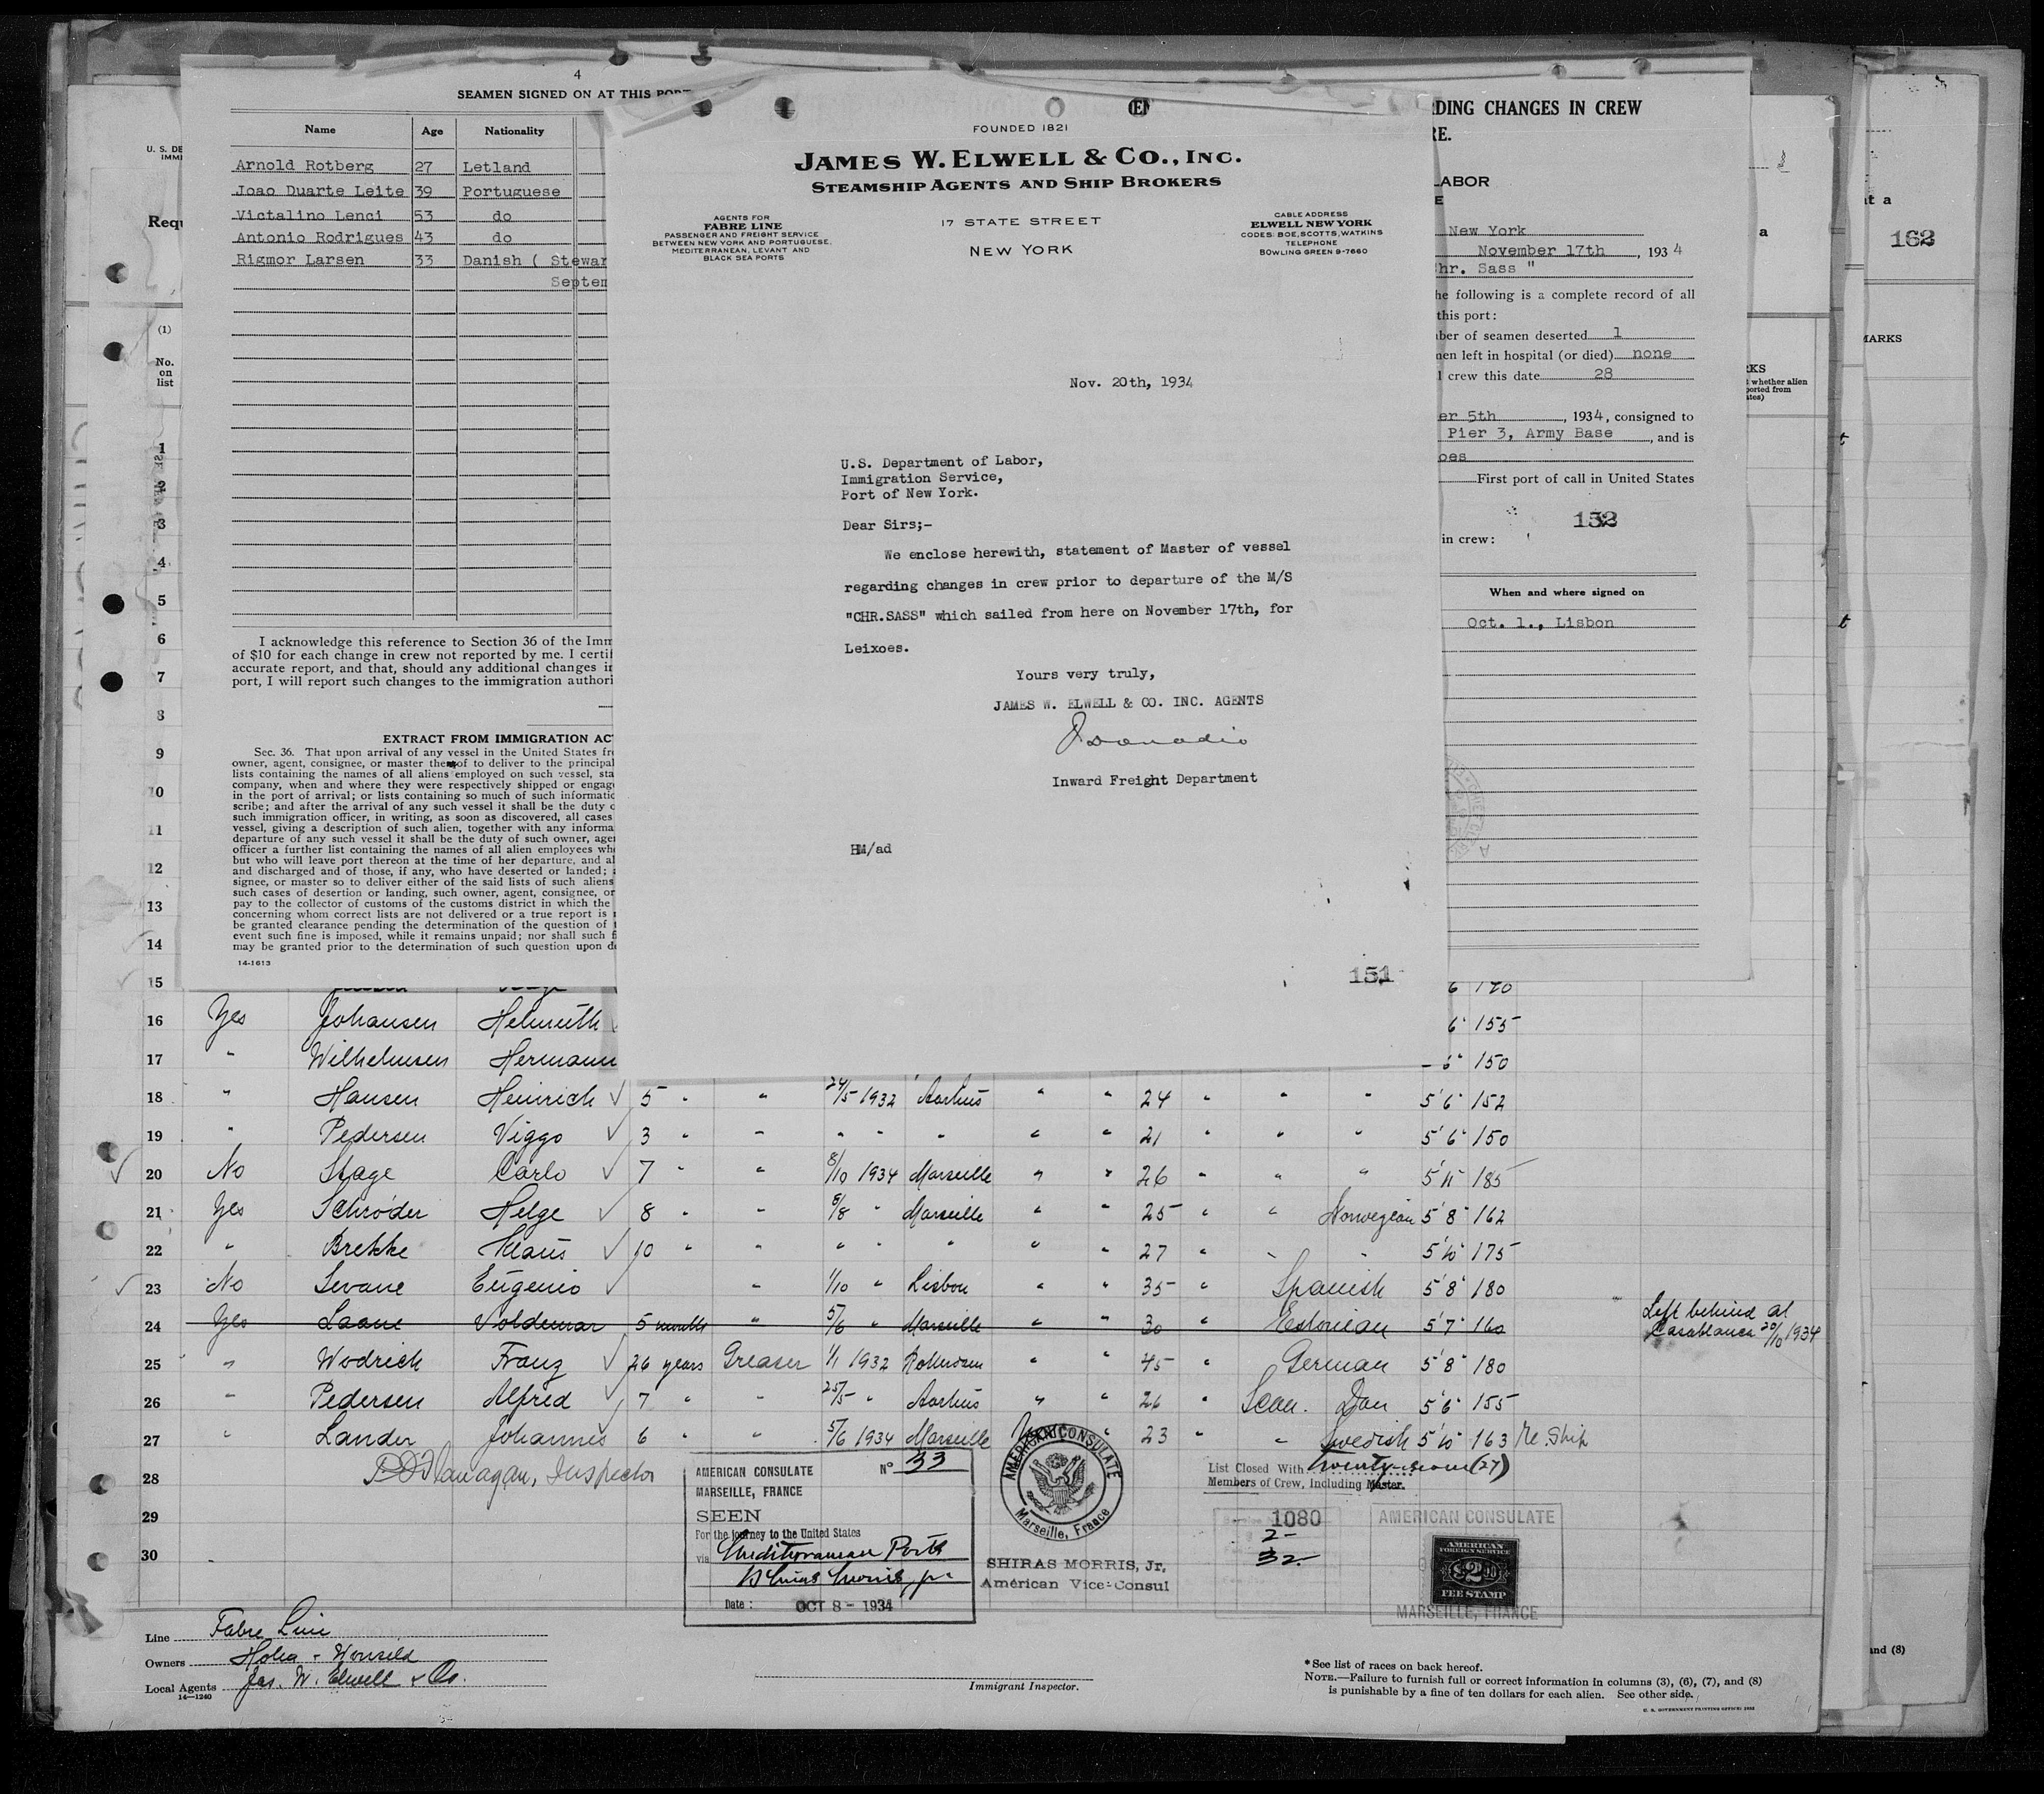 4
SEAMEN SIGNED ON AT THIS PORT
Name Age Nationality
Arnold Rotberg 27 Letland
Joao Duarte Leite 39 Portuguese
Victalino Lenci 53 do
Antonio Rodrigues 43 do
Rigmor Larsen 33 Danish ( Stewar
Septem
I acknowledge this reference to Section 36 of the Imm
of $10 for each change in crew not reported by me. I certif
accurate report, and that, should any additional changes in
port, I will report such changes to the immigration authori
EXTRACT FROM IMMIGRATION AC
Sec. 36. That upon arrival of any vessel in the United States fr
owner, agent, consignee, or master thereof to deliver to the principal
lists containing the names of all aliens employed on such vessel, sta
company, when and where they were respectively shipped or engag
in the port of arrival; or lists containing so much of such informatio
scribe; and after the arrival of any such vessel it shall be the duty o
such immigration officer, in writing, as soon as discovered, all cases
vessel, giving a description of such alien, together with any informa
departure of any such vessel it shall be the duty of such owner, age
officer a further list containing the names of all alien employees wh
but who will leave port thereon at the time of her departure, and al
and discharged and of those, if any, who have deserted or landed;
signee, or master so to deliver either of the said lists of such aliens
such cases of desertion or landing, such owner, agent, consignee, or
pay to the collector of customs of the customs district in which the
concerning whom correct lists are not delivered or a true report is
be granted clearance pending the determination of the question of
event such fine is imposed, while it remains unpaid; nor shall such fi
may be granted prior to the determination of such question upon de
14-1613
FOUNDED 1821
JAMES W. ELWELL & CO., INC.
STEAMSHIP AGENTS AND SHIP BROKERS
AGENTS FOR
FABRE LINE
PASSENGER AND FREIGHT SERVICE
BETWEEN NEW YORK AND PORTUGUESE,
MEDITERRANEAN, LEVANT AND
BLACK SEA PORTS
17 STATE STREET
NEW YORK
CABLE ADDRESS
ELWELL NEW YORK
CODES: BOE, SCOTTS, WATKINS
TELEPHONE
BOWLING GREEN 9-7660
Nov. 20th, 1934
U.S. Department of Labor,
Immigration Service,
Port of New York.
Dear Sirs;-
We enclose herewith, statement of Master of vessel
regarding changes in crew prior to departure of the M/S
"CHR.SASS" which sailed from here on November 17th, for
Leixoes.
Yours very truly,
JAMES W. ELWELL & CO. INC. AGENTS
Inward Freight Department
HM/ad
151
RDING CHANGES IN CREW
RE.
LABOR
E
New York
November 17th, 1934
hr. Sass "
he following is a complete record of all
this port:
ber of seamen deserted 1
men left in hospital (or died) none
l crew this date 28
er 5th, 1934, consigned to
Pier 3, Army Base, and is
oes
First port of call in United States
152
in crew:
When and where signed on
Oct. 1., Lisbon
162
MARKS
U. S. DE
IMMI
Requ
(1)
No.
on
list
KS
whether alien
ported from
tes)
1
2
3
4
5
6
7
8
9
10
11
12
13
14
15
16 Yes Johansen Helmuth 6" 155
17 " Wilhelmsen Hermann 6" 150
18 " Hansen Heinrich 5 " " 24/5 1932 Aarhus " " 24 " " " 5'6" 152
19 " Pedersen Viggo 3 " " " " " " " 21 " " " 5'6" 150
20 No Stage Carlo 7 " " 8/10 1934 Marseille " " 26 " " " 5'11" 185
21 Yes Schröder Helge 8 " " 8/8 " Marseille " " 25 " " Norwegian 5'8" 162
22 " Brekke Klaus 10 " " " " " " " 27 " " " 5'10" 175
23 No Sevane Eugenio " 1/10 " Lisbon " " 35 " Spanish 5'8" 180
24 Yes Laane Voldemar 5 months " 5/6 " Marseille " " 30 " Estonian 5'7" 160 Left behind at
Casablanca 20/10 1934
25 " Wodrich Franz 26 years Greaser 1/1 1932 Rotterdam " " 45 " German 5'8" 180
26 " Pedersen Alfred 7 " " 25/5 " Aarhus " " 26 " Scan. Dan 5'6" 155
27 " Lander Johannes 6 " " 5/6 1934 Marseille " 23 " " Swedish 5'10" 163 Re. Ship
28 Flanagan, Inspector
29
30
AMERICAN CONSULATE No 33
MARSEILLE, FRANCE
SEEN
For the journey to the United States
via Mediterranean Ports
Shiras Morris, Jr.
Date: OCT 8 - 1934
AMERICAN CONSULATE
Marseille, France
SHIRAS MORRIS, Jr,
American Vice-Consul
List Closed With twenty-seven (27)
Members of Crew, Including Master.
1080
2-
32
AMERICAN CONSULATE
AMERICAN
FOREIGN SERVICE
$2.00
FEE STAMP
MARSEILLE, FRANCE
Line Fabre Line
Owners
Local Agents Jas. W. Elwell & Co.
14-1240
Immigrant Inspector.
* See list of races on back hereof.
NOTE.—Failure to furnish full or correct information in columns (3), (6), (7), and (8)
is punishable by a fine of ten dollars for each alien. See other side.
U. S. GOVERNMENT PRINTING OFFICE: 1932
and (8)